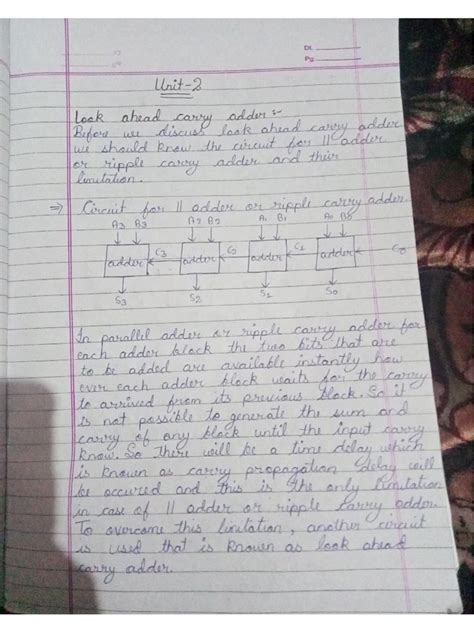 Dt.
Pg.
Unit-2
Look ahead carry adder :-
Before we discuss look ahead carry adder
we should know the circuit for || adder
or ripple carry adder and their
limitation.
⇒ Circuit for || adder or ripple carry adder
A3 B3 A2 B2 A1 B1 A0 B0
adder C3 adder C2 adder C1 adder C0
S3 S2 S1 S0
In parallel adder or ripple carry adder for
each adder block the two bits that are
to be added are available instantly how
ever each adder block waits for the carry
to arrived from its previous block. So it
is not possible to generate the sum and
carry of any block until the input carry
know. So There will be a time delay which
is known as carry propagation delay will
be occured and this is the only limitation
in case of || adder or ripple carry adder.
To overcome this limitation, another circuit
is used that is known as look ahead
carry adder.